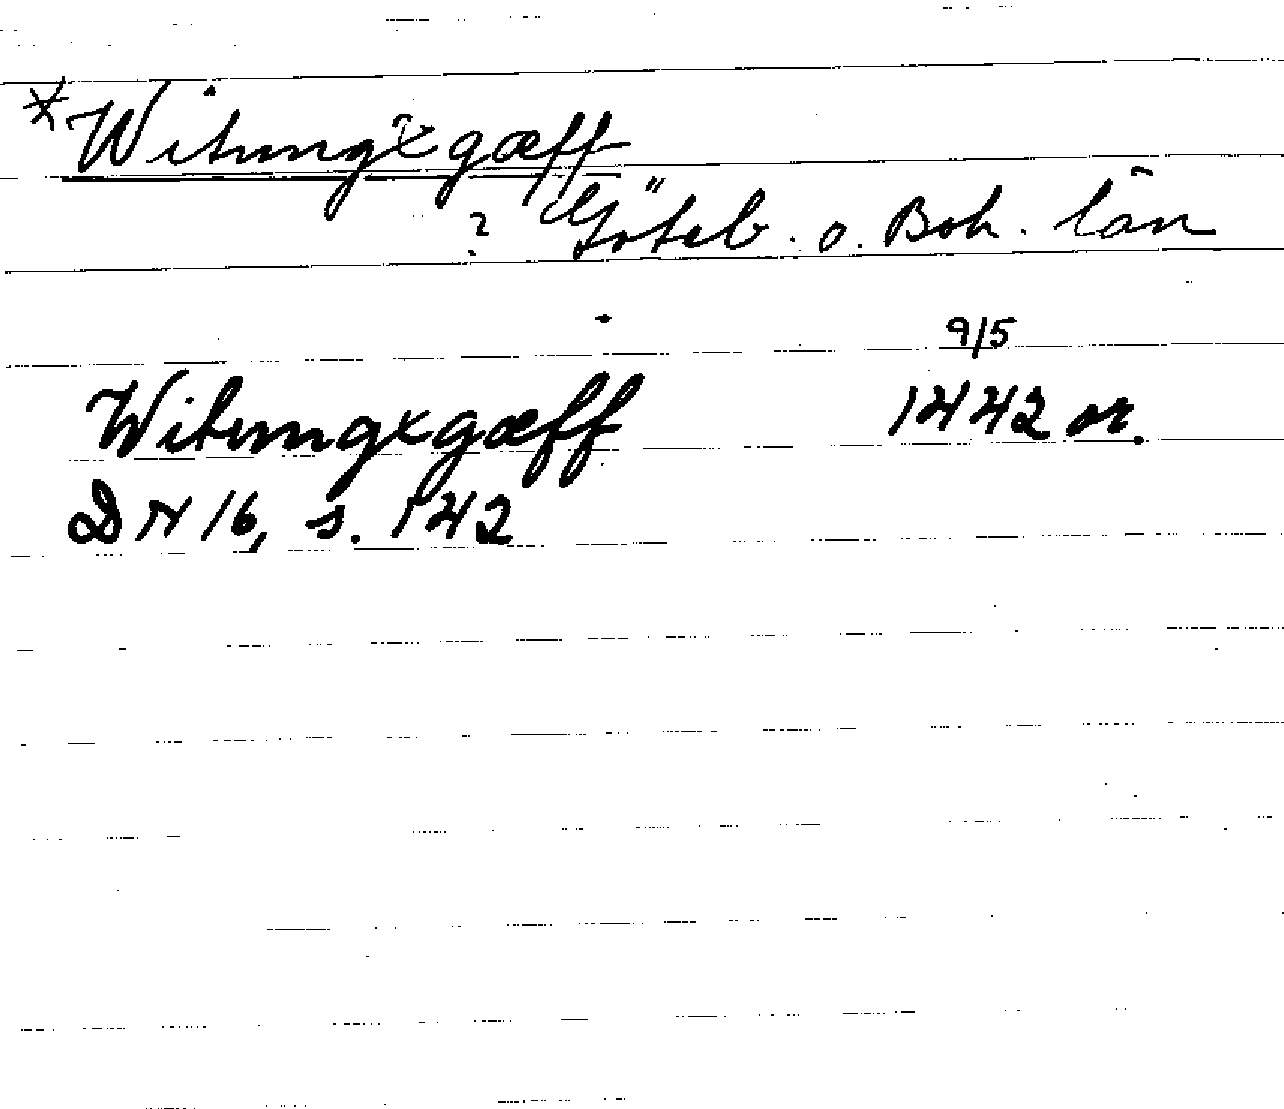 *Witungxgæff
? Göteb. o. Boh. län
9/5
Witungxgæff 1442 or.
DN 16, s. 142